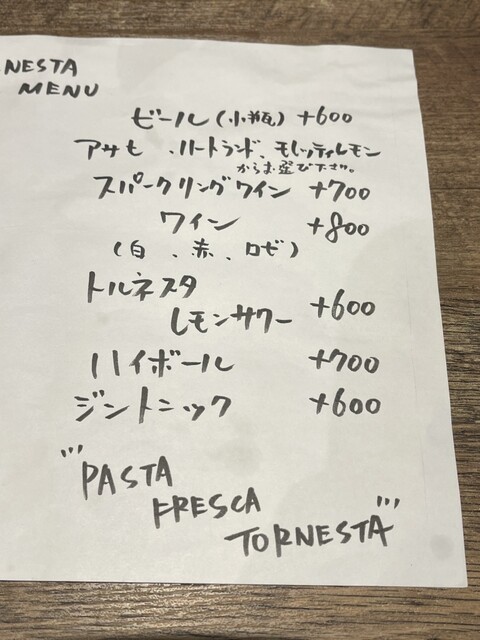 NESTA
MENU
ビール(小瓶) +600
アサヒ、ハートランド、モレッティレモン
からお選び下さい。
スパークリングワイン +700
ワイン +800
(白、赤、ロゼ)
トルネスタ
レモンサワー +600
ハイボール +700
ジントニック +600
"PASTA
FRESCA
TORNESTA"